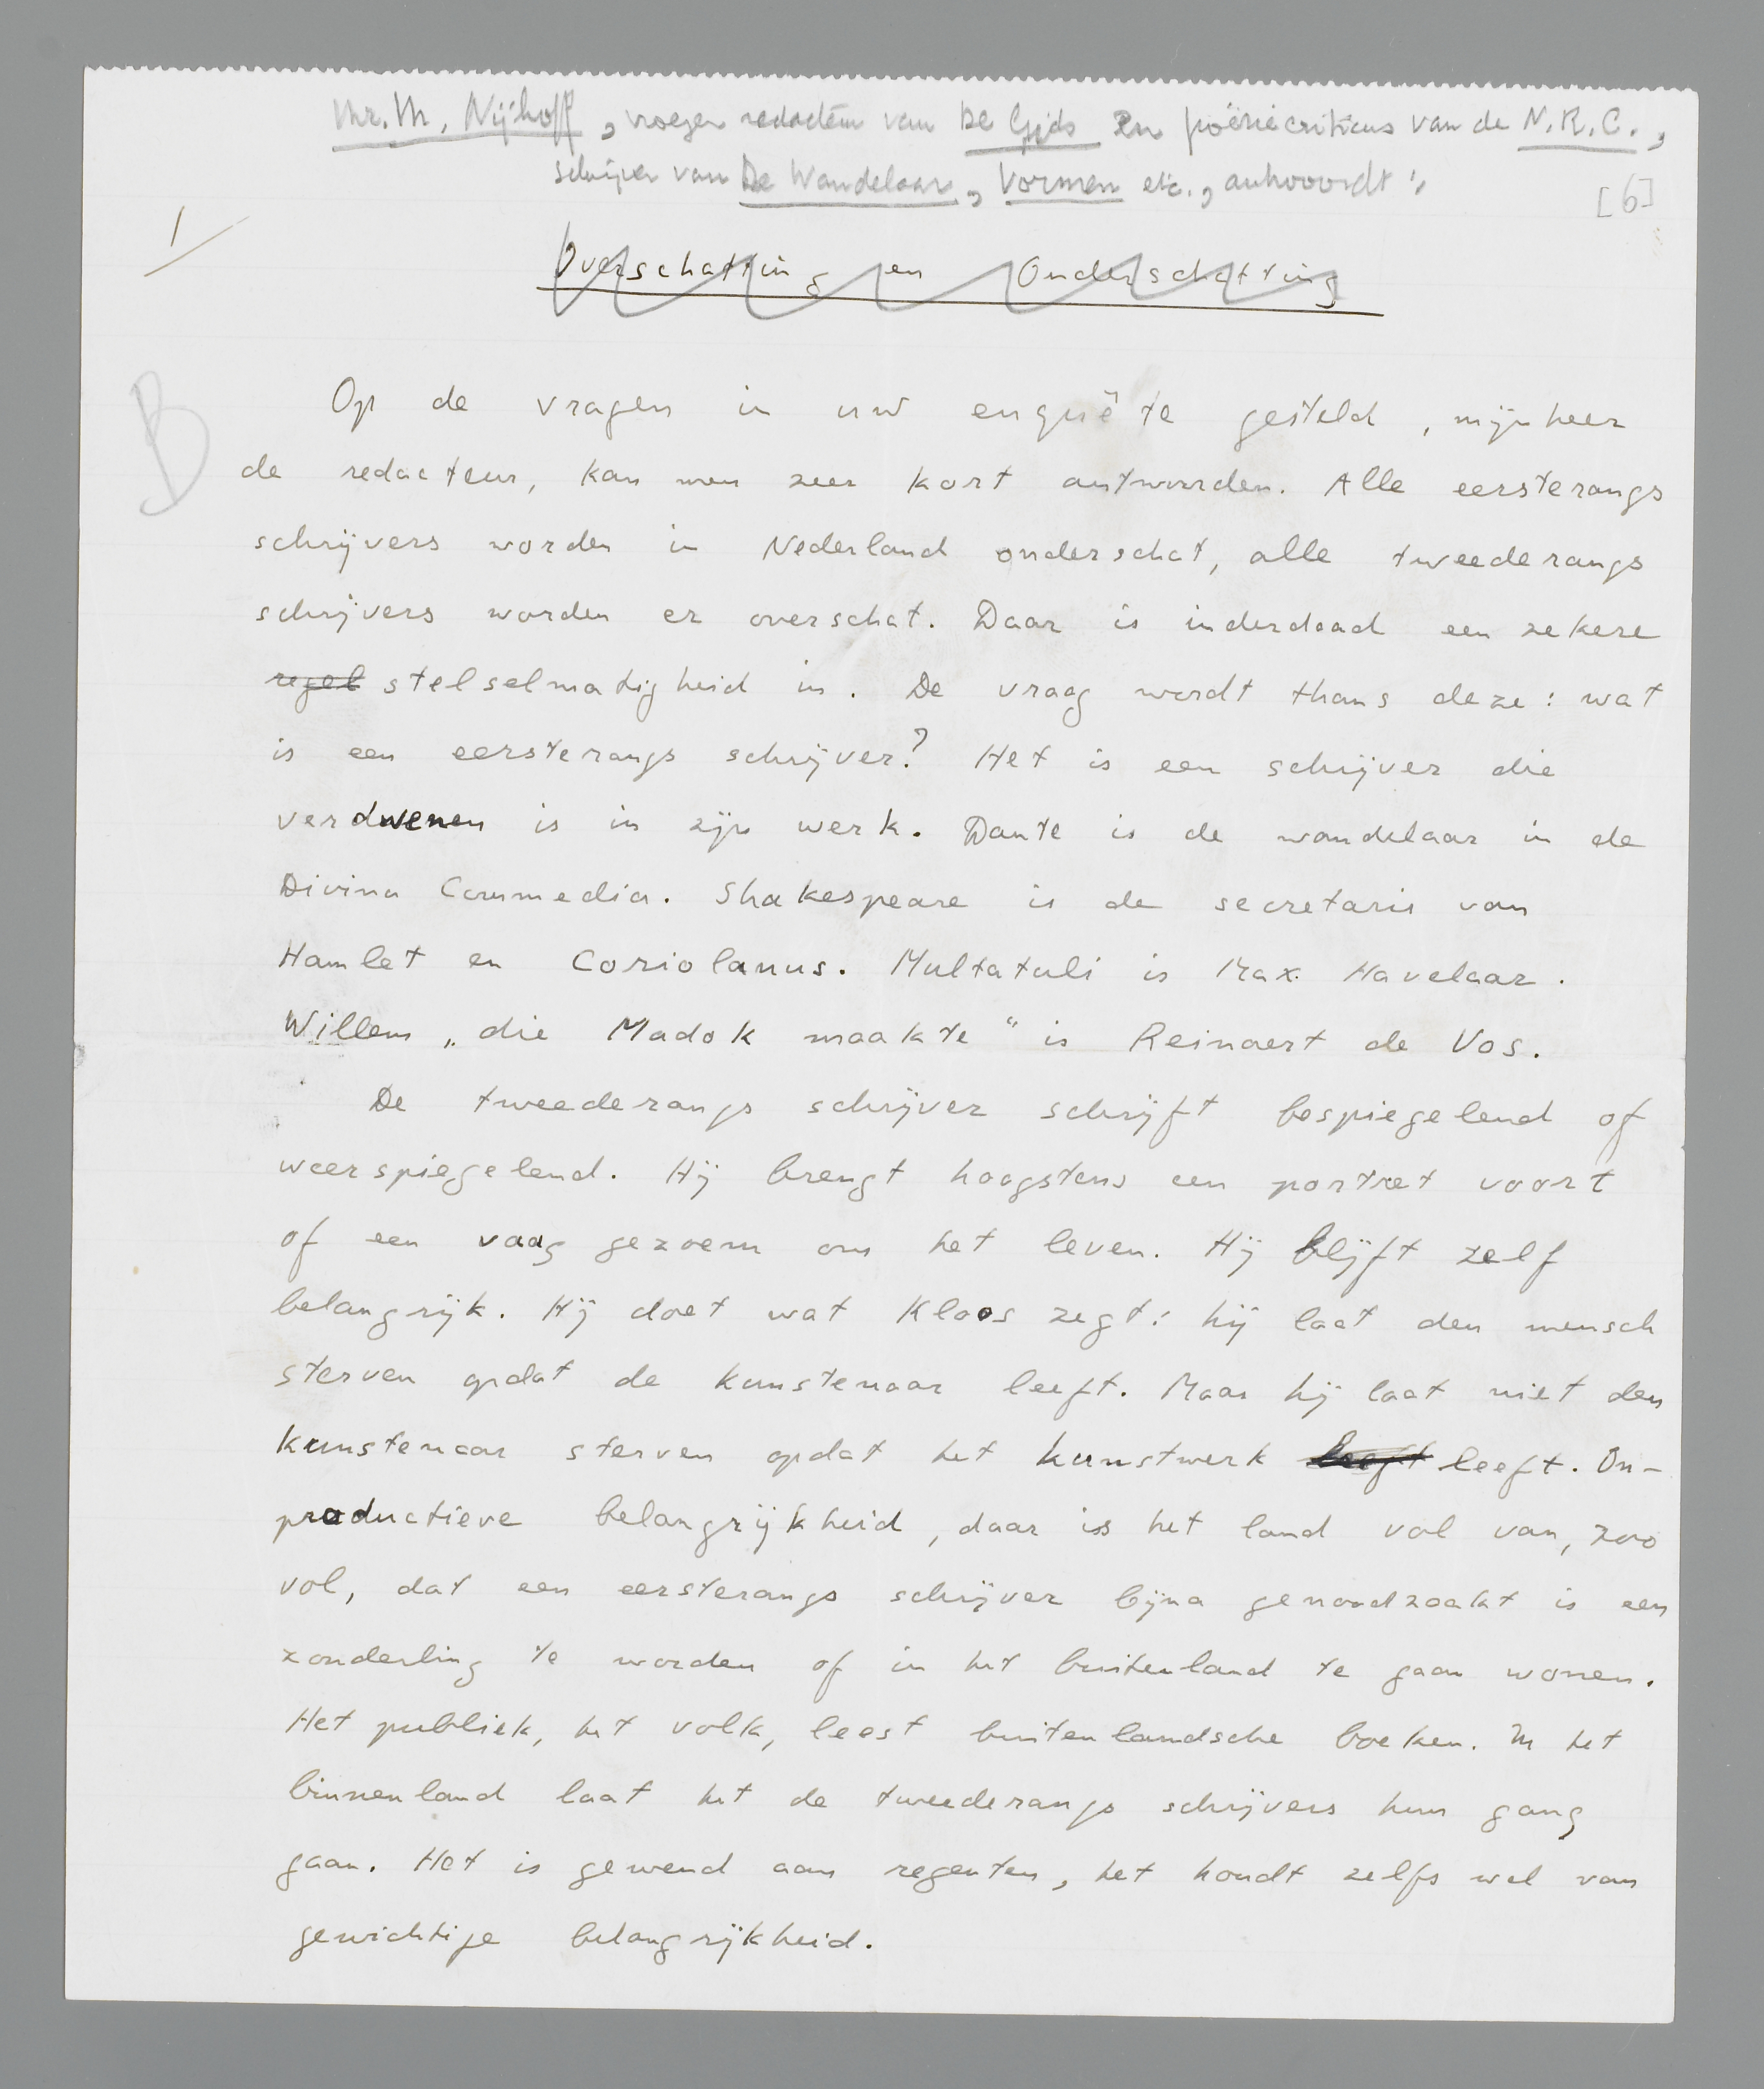 Mr. M. Nijhoff, vroeger redacteur van De Gids en poëziecriticus van de N.R.C.,
schrijver van De Wandelaar, Vormen etc., antwoordt:
[6]
1
Overschatting en Onderschatting
B
Op de vragen in uw enquête gesteld, mijnheer
de redacteur, kan men zeer kort antwoorden. Alle eersterangs
schrijvers worden in Nederland onderschat, alle tweederangs
schrijvers worden er overschat. Daar is inderdaad een zekere
regel stelselmatigheid in. De vraag wordt thans deze: wat
is een eersterangs schrijver? Het is een schrijver die
verdwenen is in zijn werk. Dante is de wandelaar in de
Divina Commedia. Shakespeare is de secretaris van
Hamlet en Coriolanus. Multatuli is Max Havelaar.
Willem „die Madok maakte“ is Reinaert de Vos.
De tweederangs schrijver schrijft bespiegelend of
weerspiegelend. Hij brengt hoogstens een portret voort
of een vaag gezoem om het leven. Hij blijft zelf
belangrijk. Hij doet wat Kloos zegt: hij laat den mensch
sterven opdat de kunstenaar leeft. Maar hij laat niet den
kunstenaar sterven opdat het kunstwerk leeft leeft. On-
productieve belangrijkheid, daar is het land vol van, zoo
vol, dat een eersterangs schrijver bijna genoodzaakt is een
zonderling te worden of in het buitenland te gaan wonen.
Het publiek, het volk, leest buitenlandsche boeken. In het
binnenland laat het de tweederangs schrijvers hun gang
gaan. Het is gewend aan regenten, het houdt zelfs wel van
gewichtige belangrijkheid.